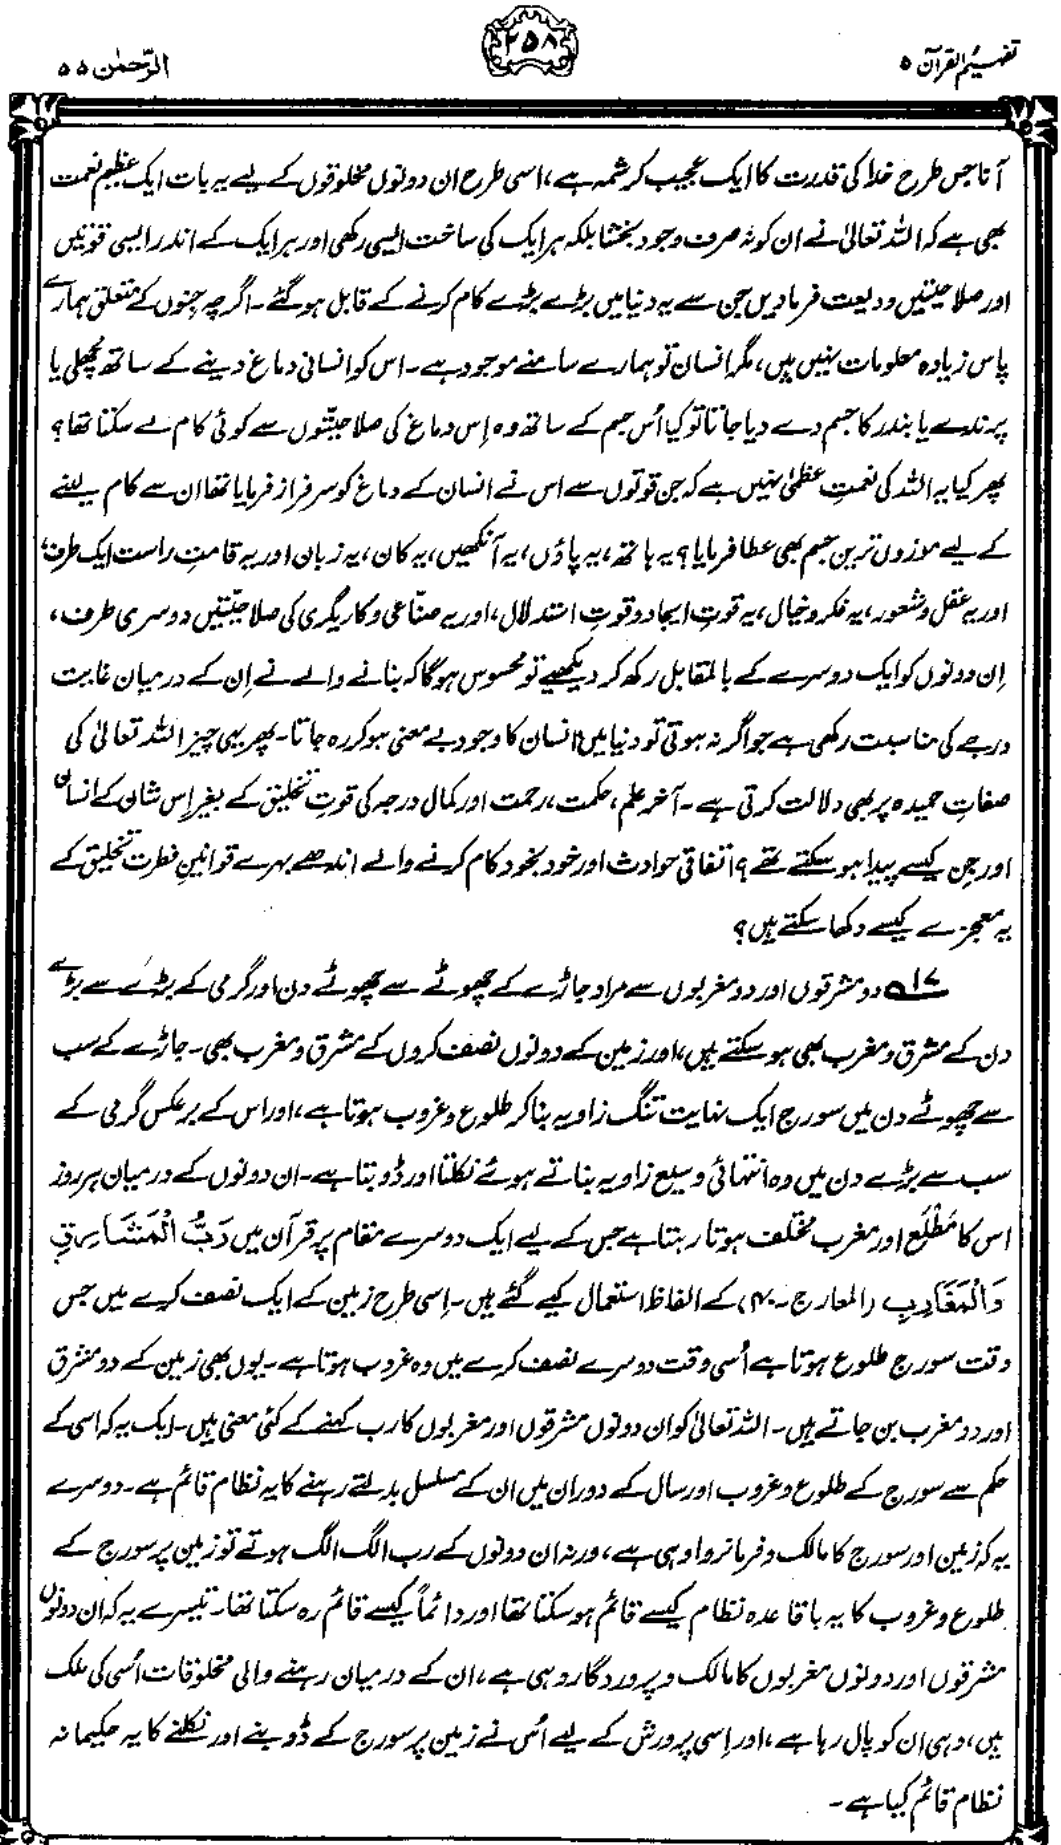 تفہیم القرآن ۵
۲۵۸
الرّحمٰن ۵۵
آنا جس طرح خدا کی قدرت کا ایک عجیب کرشمہ ہے، اسی طرح ان دونوں مخلوقوں کے لیے یہ بات ایک عظیم نعمت
بھی ہے کہ اللہ تعالیٰ نے ان کو نہ صرف وجود بخشا بلکہ ہر ایک کی ساخت ایسی رکھی اور ہر ایک کے اندر ایسی قوتیں
اور صلاحیتیں ودیعت فرما دیں جن سے یہ دنیا میں بڑے بڑے کام کرنے کے قابل ہو گئے۔ اگرچہ جِنوں کے متعلق ہمارے
پاس زیادہ معلومات نہیں ہیں، مگر انسان تو ہمارے سامنے موجود ہے۔ اس کو انسانی دماغ دینے کے ساتھ مچھلی یا
پرندے یا بندر کا جسم دے دیا جاتا تو کیا اُس جسم کے ساتھ وہ اِس دماغ کی صلاحیتّوں سے کوئی کام لے سکتا تھا؟
پھر کیا یہ اللہ کی نعمتِ عظمیٰ نہیں ہے کہ جن قوتوں سے اس نے انسان کے دماغ کو سرفراز فرمایا تھا ان سے کام لینے
کے لیے موزوں ترین جسم بھی عطا فرمایا؟ یہ ہاتھ، یہ پاؤں، یہ آنکھیں، یہ کان، یہ زبان اور یہ قامتِ راست ایک طرف،
اور یہ عقل و شعور، یہ فکر و خیال، یہ قوتِ ایجاد و قوتِ استدلال، اور یہ صنّاعی و کاریگری کی صلاحیّتیں دوسری طرف،
اِن دونوں کو ایک دوسرے کے بالمقابل رکھ کر دیکھیے تو محسوس ہوگا کہ بنانے والے نے اِن کے درمیان غایت
درجے کی مناسبت رکھی ہے جو اگر نہ ہوتی تو دنیا میں انسان کا وجود بے معنی ہو کر رہ جاتا۔ پھر یہی چیز اللہ تعالیٰ کی
صفاتِ حمیدہ پر بھی دلالت کرتی ہے۔ آخر علم، حکمت، رحمت اور کمال درجہ کی قوتِ تخلیق کے بغیر اِس شان کے انسان
اور جِن کیسے پیدا ہو سکتے تھے؟ اتفاقی حوادث اور خود بخود کام کرنے والے اندھے بہرے قوانینِ فطرت تخلیق کے
یہ معجزے کیسے دکھا سکتے ہیں؟
۱۷ دو مشرقوں اور دو مغربوں سے مراد جاڑے کے چھوٹے سے چھوٹے دن اور گرمی کے بڑے سے بڑے
دن کے مشرق و مغرب بھی ہو سکتے ہیں، اور زمین کے دونوں نصف کروں کے مشرق و مغرب بھی۔ جاڑے کے سب
سے چھوٹے دن میں سورج ایک نہایت تنگ زاویہ بنا کر طلوع و غروب ہوتا ہے، اور اس کے برعکس گرمی کے
سب سے بڑے دن میں وہ انتہائی وسیع زاویہ بناتے ہوئے نکلتا اور ڈوبتا ہے۔ ان دونوں کے درمیان ہر روز
اس کا مَطْلَع اور مغرب مختلف ہوتا رہتا ہے جس کے لیے ایک دوسرے مقام پر قرآن میں رَبُّ الْمَشَارِقِ
وَالْمَغَارِبِ (المعارج۔ ۴۰) کے الفاظ استعمال کیے گئے ہیں۔ اِسی طرح زمین کے ایک نصف کرے میں جس
وقت سورج طلوع ہوتا ہے اُسی وقت دوسرے نصف کرے میں وہ غروب ہوتا ہے۔ یوں بھی زمین کے دو مشرق
اور دو مغرب بن جاتے ہیں۔ اللہ تعالیٰ کو ان دونوں مشرقوں اور مغربوں کا رب کہنے کے کئی معنی ہیں۔ ایک یہ کہ اسی کے
حکم سے سورج کے طلوع و غروب اور سال کے دوران میں ان کے مسلسل بدلتے رہنے کا یہ نظام قائم ہے۔ دوسرے
یہ کہ زمین اور سورج کا مالک و فرمانروا وہی ہے، ورنہ ان دونوں کے رب الگ الگ ہوتے تو زمین پر سورج کے
طلوع و غروب کا یہ باقاعدہ نظام کیسے قائم ہو سکتا تھا اور دائماً کیسے قائم رہ سکتا تھا۔ تیسرے یہ کہ ان دونوں
مشرقوں اور دونوں مغربوں کا مالک و پروردگار وہی ہے، ان کے درمیان رہنے والی مخلوقات اُسی کی ملک
ہیں، وہی ان کو پال رہا ہے، اور اِسی پرورش کے لیے اُس نے زمین پر سورج کے ڈوبنے اور نکلنے کا یہ حکیمانہ
نظام قائم کیا ہے۔